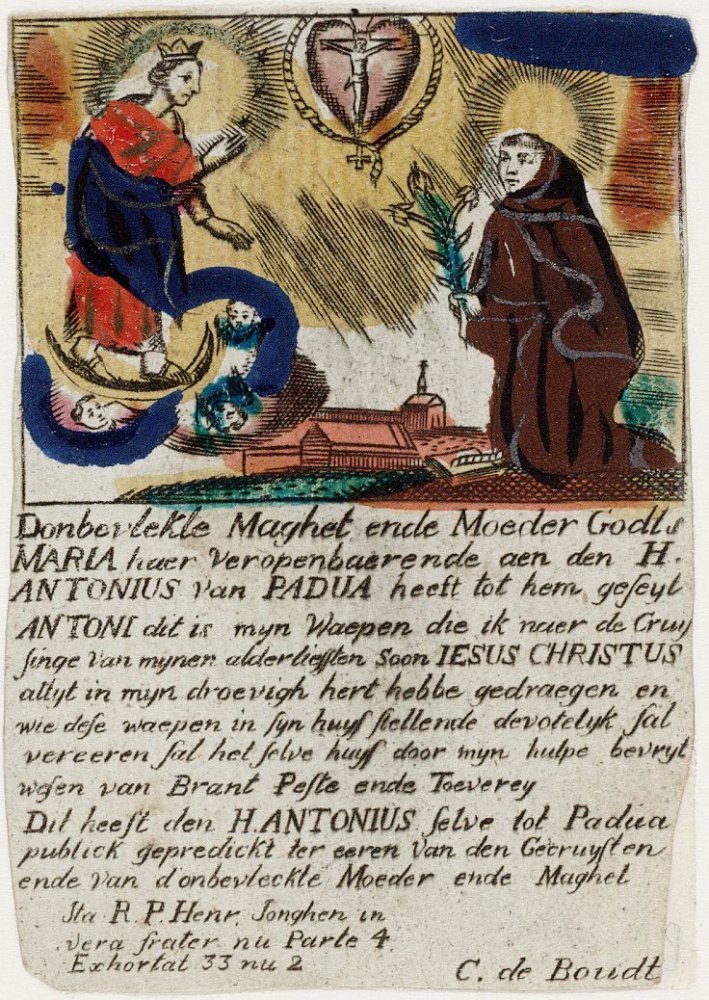 Donbevlekle Maghet ende Moeder Godts
MARIA haer Veropenbaerende aen den H.
ANTONIUS van PADUA heeft tot hem geseyt
ANTONI dit is myn Waepen die ik naer de Cruy
singe van mynen alderliefsten Soon IESUS CHRISTUS
altyt in myn droevigh hert hebbe gedraegen en
wie dese waepen in syn huys stellende devotelyk sal
vereeren sal het selve huys door myn hulpe bevryt
wesen van Brant Peste ende Toeverey
Dit heeft den H. ANTONIUS selve tot Padua
publick gepredickt ter eeren van den Gecruysten
ende van d'onbevleckte Moeder ende Maghet
Ita R. P. Henr. Jonghen in
vera frater nu Parte 4
Exhortat 33 nu 2
C. de Boudt